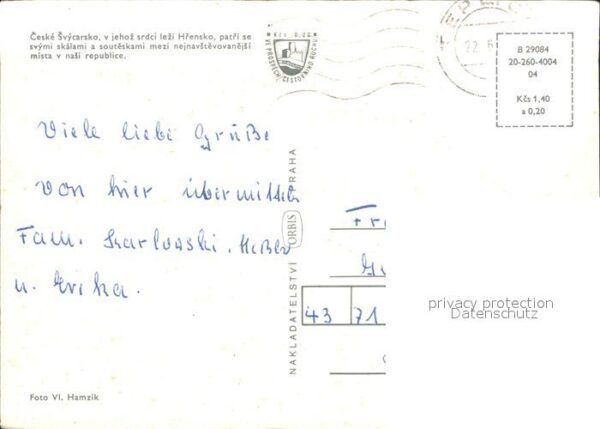 České Švýcarsko, v jehož srdci leží Hřensko, patří se
svými skálami a soutěskami mezi nejnavštěvovanější
místa v naší republice.
VE PROSPĚCH CESTOVNÍHO RUCHU
22. 6
B 29084
20-260-4004
04
Kčs 1,40
a 0,20
Viele liebe Grüße
von hier übermitteln
Fam.
u. Erika.
NAKLADATELSTVÍ ORBIS PRAHA
43 71
privacy protection
Datenschutz
Foto Vl. Hamzík